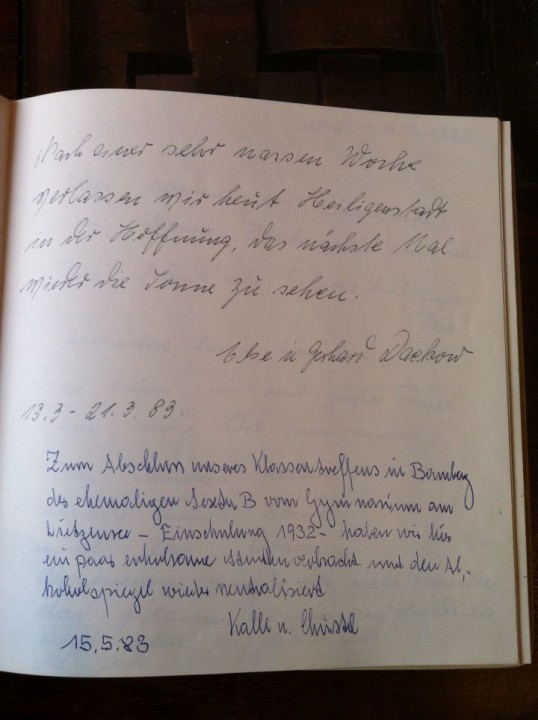 Nach einer sehr nassen Woche
verlassen wir heut Heiligenstadt
in der Hoffnung, das nächste Mal
wieder die Sonne zu sehen.
Else u Gerhard
13.3 - 21.3.83.
Zum Abschluss unseres Klassentreffens in Bamberg
der ehemaligen Sexta B vom Gymnasium am
Lietzensee - Einschulung 1932 - haben wir hier
ein paar erholsame Stunden verbracht und den Al-
koholspiegel wieder neutralisiert
Kalle u. Christa
15.5.83